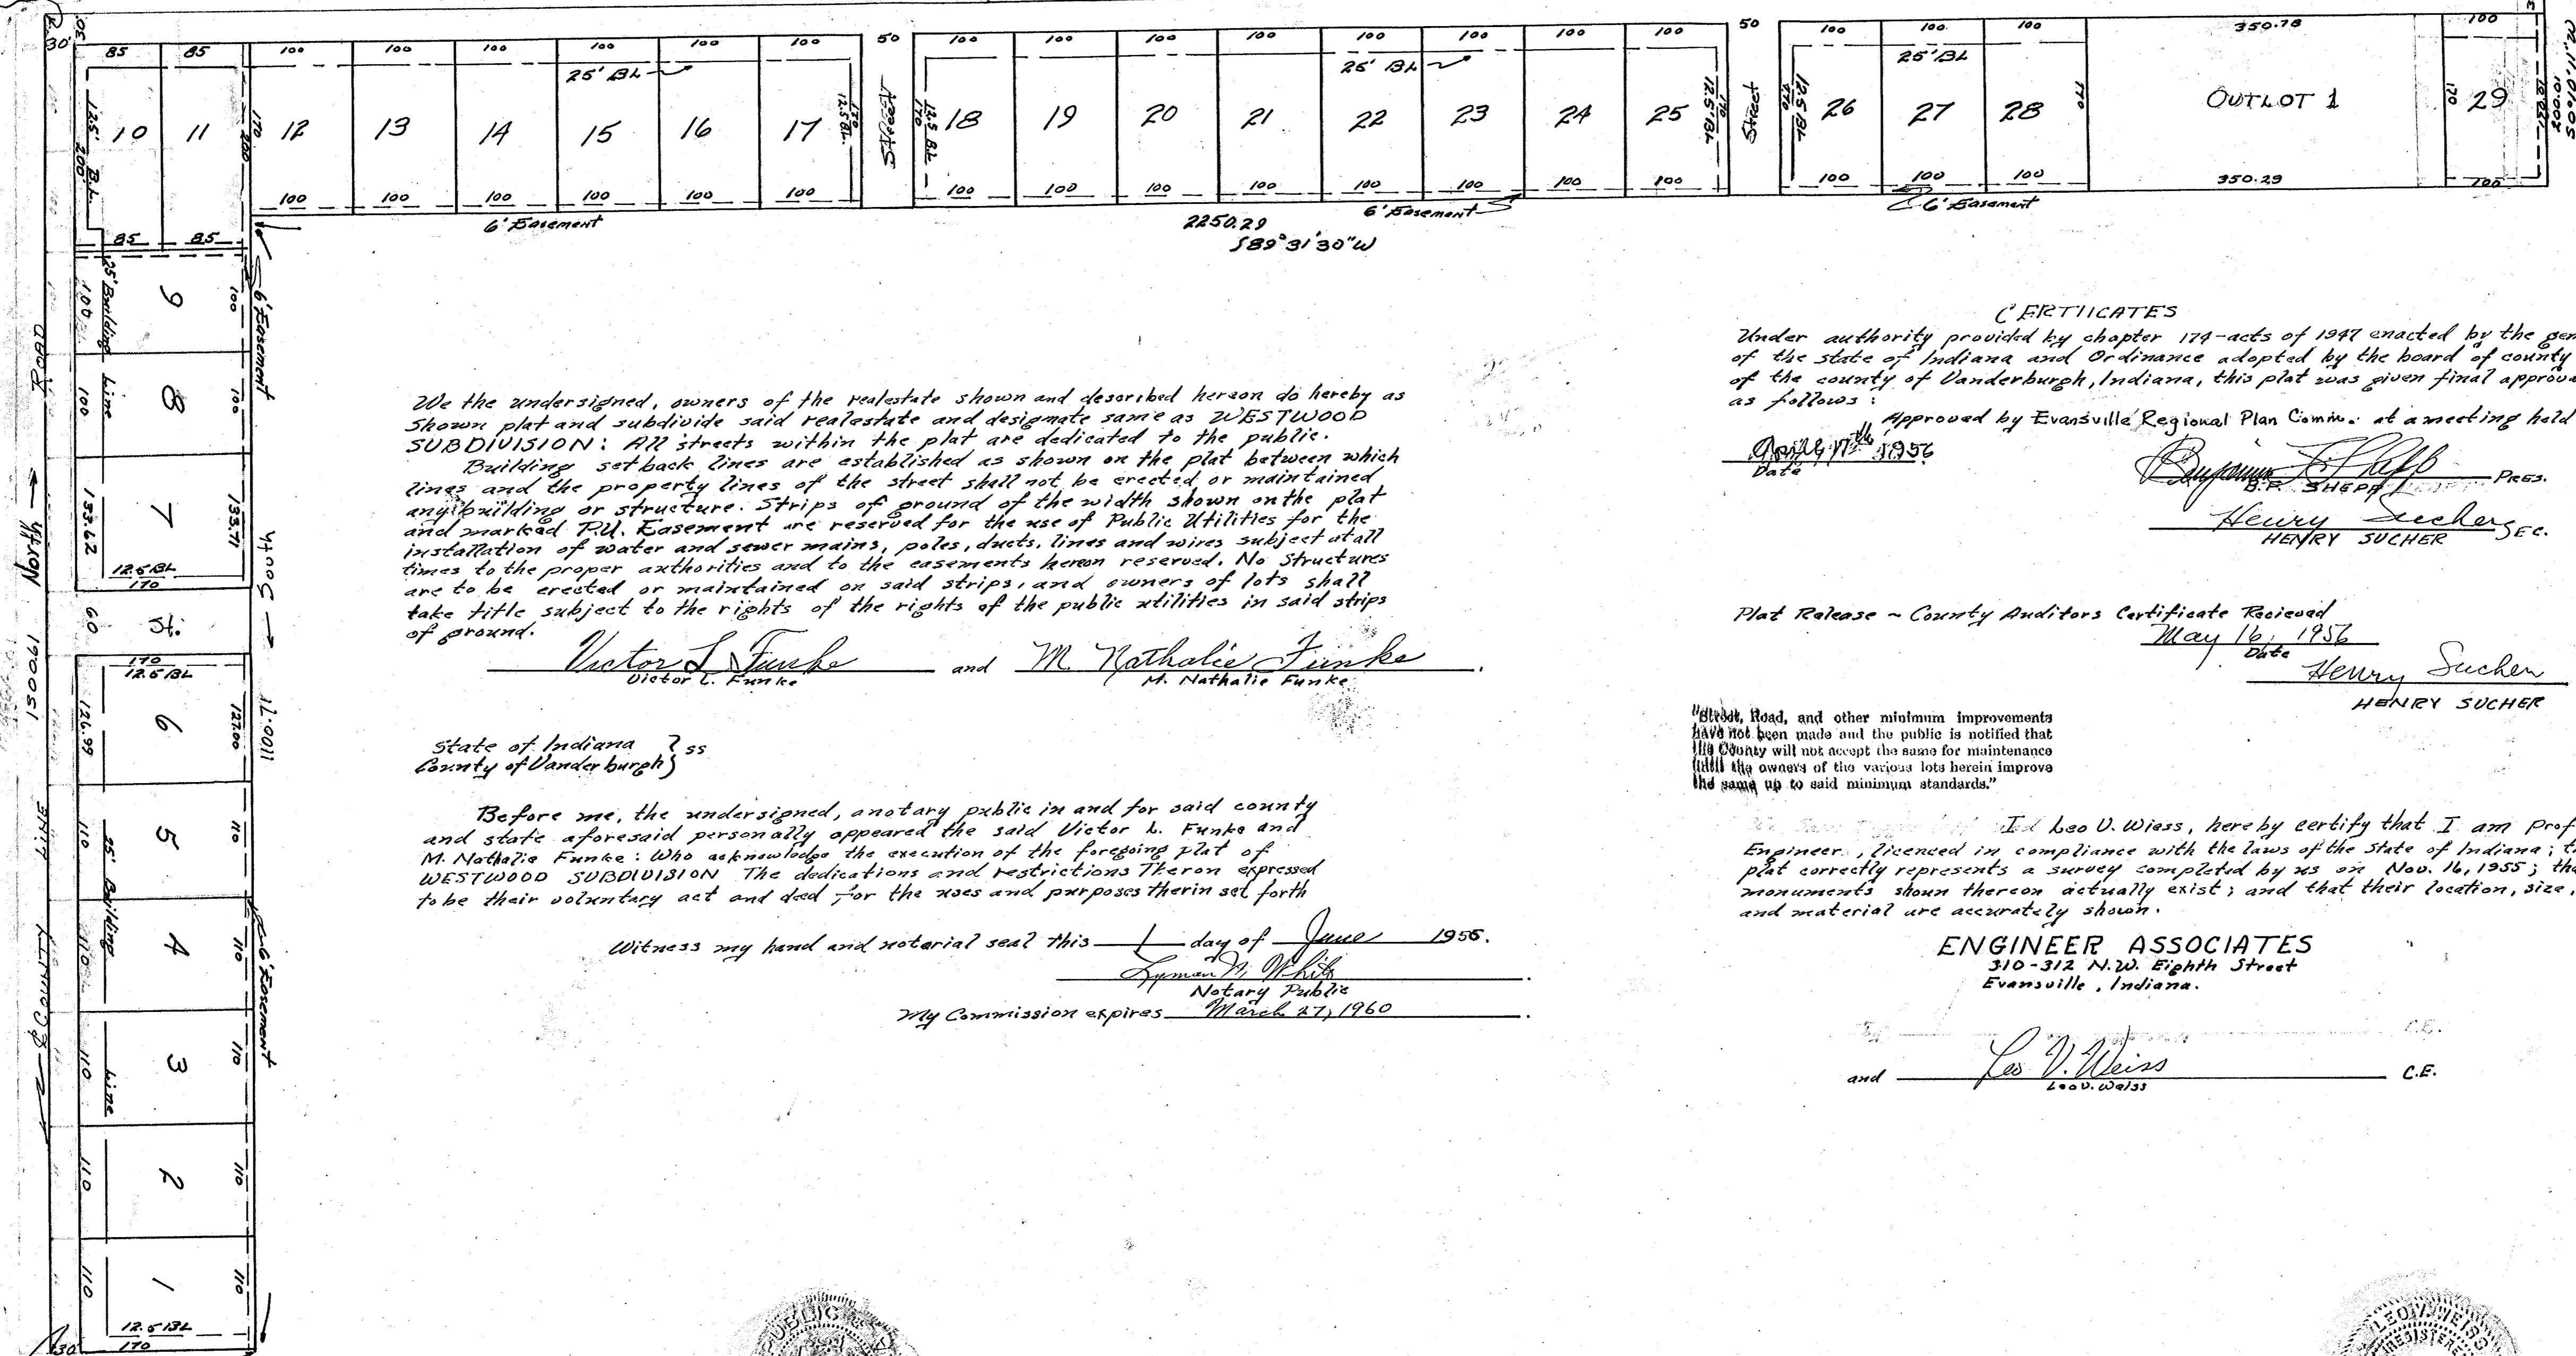 30'
85 85 100 100 100 100 100 100 50 100 100 100 100 100 100 100 100 50 100 100 100 350.78 100
25' BL 25' BL 25' BL
12.5' B.L. 200' 170 200 170 12.5 BL. Street 12.5 BL 170 170 12.5' BL Street 12.5' BL 170 170
10 11 12 13 14 15 16 17 18 19 20 21 22 23 24 25 26 27 28 OUTLOT 1 29
100 100 100 100 100 100 100 100 100 100 100 100 100 100 100 100 100 350.29 100
6' Easement 6' Easement 6' Easement
2250.29
S89°31'30"W
85 85
9 100 100
25' Building Line
6' Easement
8 100 100
ROAD
7 133.62 133.71
12.5 BL
170
North South
60 St.
1500.61
170
12.5 BL
6 126.99 127.00
1100.71
5 110 110
25' Building Line
4 110 110
6' Easement
3 110 110
2 110 110
1 110 110
12.5 BL
170
30'
We the undersigned, owners of the realestate shown and described hereon do hereby as
Shown plat and subdivide said realestate and designate same as WESTWOOD
SUBDIVISION: All streets within the plat are dedicated to the public.
Building setback lines are established as shown on the plat between which
lines and the property lines of the street shall not be erected or maintained
any building or structure. Strips of ground of the width shown on the plat
and marked P.U. Easement are reserved for the use of Public Utilities for the
installation of water and sewer mains, poles, ducts, lines and wires subject at all
times to the proper authorities and to the easements hereon reserved. No Structures
are to be erected or maintained on said strips, and owners of lots shall
take title subject to the rights of the rights of the public utilities in said strips
of ground.
Victor L Funke and M. Nathalie Funke.
Victor L. Funke M. Nathalie Funke
State of Indiana } ss
County of Vanderburgh }
Before me, the undersigned, a notary public in and for said county
and state aforesaid personally appeared the said Victor L. Funke and
M. Nathalie Funke: Who acknowledge the execution of the foregoing plat of
WESTWOOD SUBDIVISION The dedications and restrictions Theron expressed
to be their voluntary act and deed, for the uses and purposes therin set forth
Witness my hand and notarial seal this 1 day of June 1956.
Lyman N. White
Notary Public
My Commission expires March 27, 1960.
CERTIICATES
Under authority provided by chapter 174-acts of 1947 enacted by the gen
of the state of Indiana and Ordinance adopted by the board of county
of the county of Vanderburgh, Indiana, this plat was given final approva
as follows:
Approved by Evansville Regional Plan Comm. at a meeting held
April 17th 1956
Date
B.F. SHEPP PRES.
Henry Sucher SEC.
HENRY SUCHER
Plat Release - County Auditors Certificate Recieved
May 16, 1956
Date
Henry Sucher
HENRY SUCHER
"Street, Road, and other minimum improvements
have not been made and the public is notified that
the County will not accept the same for maintenance
until the owners of the various lots herein improve
the same up to said minimum standards."
I Leo V. Wiess, hereby certify that I am Prof
Engineer, licenced in compliance with the laws of the State of Indiana; t
plat correctly represents a survey completed by us on Nov. 16, 1955; tha
monuments shown thereon actually exist; and that their location, size,
and material are accurately shown.
ENGINEER ASSOCIATES
310-312 N.W. Eighth Street
Evansville, Indiana.
and Leo V. Weiss C.E.
Leo V. Weiss
PUBLIC
LEO V. WEISS
REGISTERE